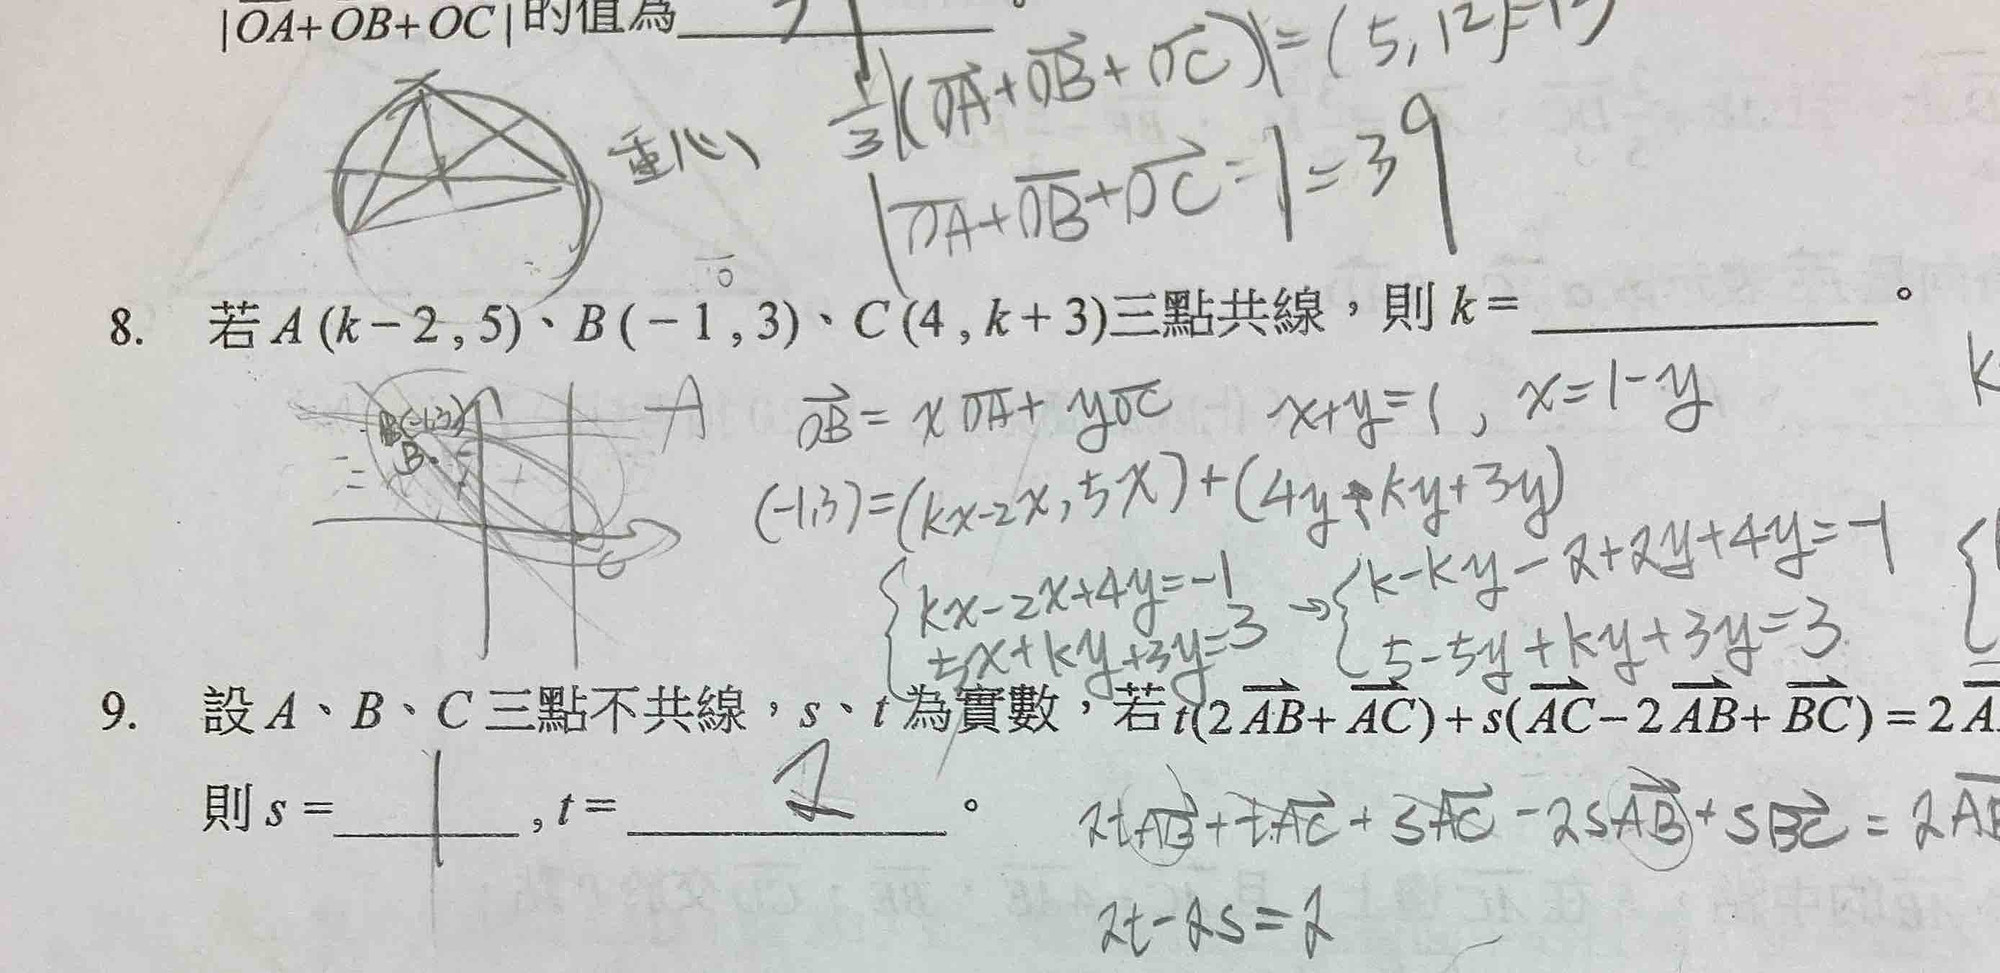 |OA+OB+OC|的值為
1/3|(OA+OB+OC)|=(5,12)=13
重心
|OA+OB+OC=|=39
8. 若A(k−2,5)、B(−1,3)、C(4,k+3)三點共線，則k=。
B(-1,3)
A
B
C
OB=xOA+yOC x+y=1, x=1-y
k
(-1,3)=(kx-2x,5x)+(4y,ky+3y)
{kx-2x+4y=-1 → {k-ky-2+2y+4y=-1
5x+ky+3y=3 5-5y+ky+3y=3
9. 設A、B、C三點不共線，s、t為實數，若t(2AB+AC)+s(AC−2AB+BC)=2A
則s=1,t=2。
2tAB+tAC+sAC-2sAB+sBC=2AB
2t-2s=2